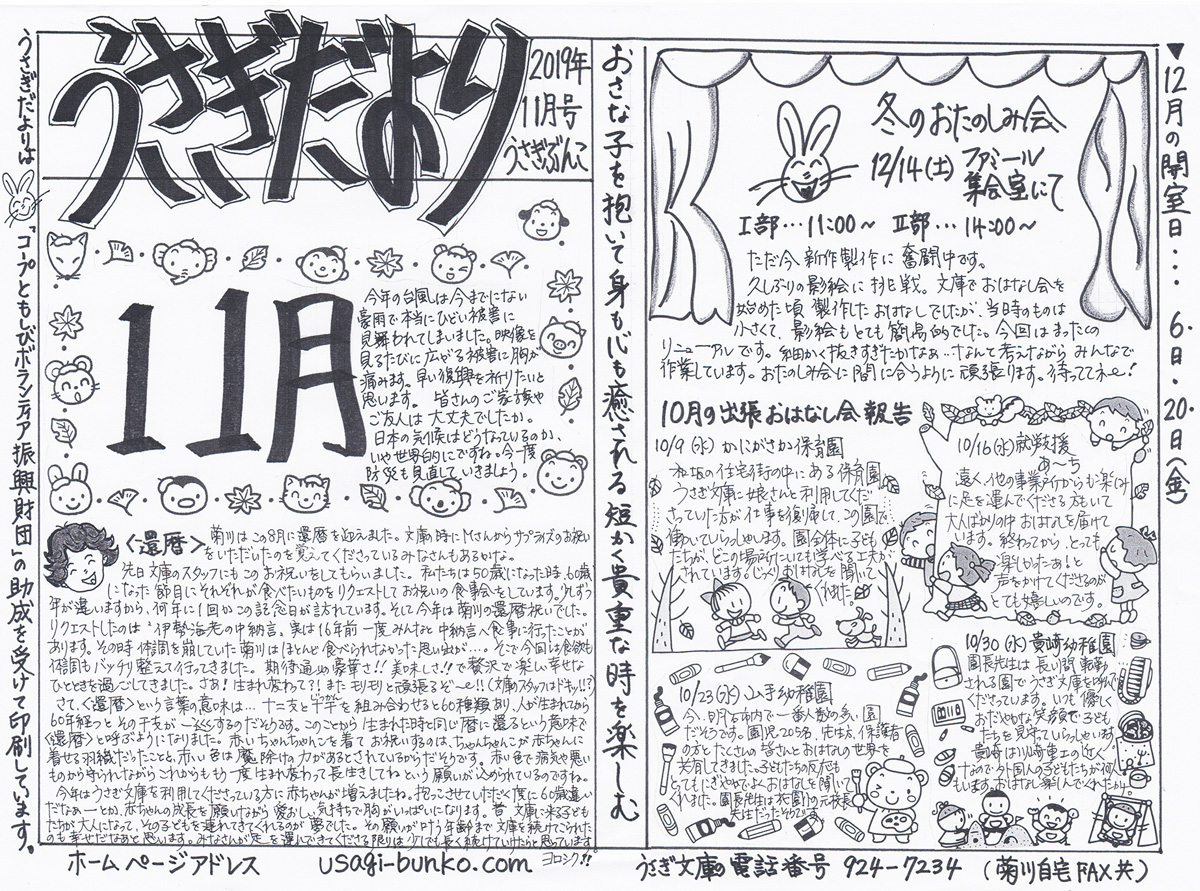 うさぎだより
2019年
11月号
うさぎぶんこ
うさぎだよりは「コープともしびボランティア振興財団」の助成を受けて印刷しています。
11月
今年の台風は今までにない
豪雨で本当にひどい被害に
見舞われてしまいました。映像を
見るたびに広がる被害に胸が
痛みます。早い復興を祈りたいと
思います。 皆さんのご家族や
ご友人は大丈夫でしたか。
日本の気候はどうなっているのか、
いや世界的にですね。今一度
防災も見直していきましょう。
〈還暦〉
菊川はこの8月に還暦を迎えました。文庫の時にMさんからサプライズのお祝い
をいただいたのを覚えてくださっているみなさんもあるかな。
先日文庫のスタッフにもこのお祝いをしてもらいました。私たちは50歳になった時、60歳
になった節目にそれぞれが食べたいものをリクエストしてお祝いの食事会をしています。少しずつ
年が違いますから、何年に1回かこの記念日が訪れています。そして今年は菊川の還暦祝いでした。
リクエストしたのは"伊勢海老の中納言。実は16年前一度みんなと中納言へ食事に行ったことが
あります。その時体調を崩していた菊川はほとんど食べられなかった思い出が…。そこで今回は食欲も
体調もバッチリ整えて行ってきました。期待通りの豪華さ!!美味しさ!!で贅沢で楽しい幸せな
ひとときを過ごしてきました。さあ!生まれ変わって?!またモリモリと頑張るぞ〜!!(文庫のスタッフはドキッ!!?)
さて、〈還暦〉という言葉の意味は…十二支と十干を組み合わせると60種類あり、人が生まれてから
60年経つとその干支が一巡するのだそうです。このことから「生まれた時と同じ暦に還るという意味で
〈還暦〉と呼ぶようになりました。赤いちゃんちゃんこを着てお祝いするのは、ちゃんちゃんこが赤ちゃんに
着せる羽織だったこと、赤い色は魔除けの力があるとされているからだそうです。赤い色で病気や悪い
ものから守られながらこれからももう一度生まれ変わって長生きしてねという願いが込められているのですね。
今年はうさぎ文庫を利用してくださっている方に赤ちゃんが増えましたね。抱っこさせていただく度に60歳違い
だなぁーとか、赤ちゃんの成長を願いながら愛おしい気持ちで胸がいっぱいになります。昔、文庫に来る子ども
たちが大人になって、その子どもを連れてきてくれるのが夢でした。その願いが叶う年齢まで文庫を続けてこられた
のも幸せだなあと思います。みなさんが足を運んできてくださる限りは少しでも長く続けていけたらと思っています
ヨロシク!!
おさな子を抱いて身も心も癒される短かく貴重な時を楽しむ
▼12月の開室日・・・ 6日・20日(金)
冬のおたのしみ会
12/14(土) ファミール
集会室にて
Ⅰ部…11:00〜 Ⅱ部…14:00〜
ただ今新作製作に奮闘中です。
久しぶりの影絵に挑戦。文庫でおはなし会を
始めた頃製作したおはなしでしたが、当時のものは
小さくて、影絵もとても簡易的でした。今回はまったくの
リニューアルです。細かく抜きすぎたかなぁ…なんて考えながらみんなで
作業しています。おたのしみ会に間に合うように頑張ります。待っててネ〜!
10月の出張おはなし会報告
10/9(水)かにがさか保育園
和坂の住宅街の中にある保育園
うさぎ文庫に娘さんと利用してくだ
さっていた方が仕事を復帰して、この園で
働いていらっしゃいます。園全体に子ども
たちが、どこの場所にいても学べる工夫が
されています。じっくりおはなしを聞いて
くれました。
10/16(水)就労支援
あ〜ち
遠く、他の事業所からも楽しみ
に足を運んでくださる方もいて
大人ばかりの中おはなしを届けて
います。終わってから、とっても
楽しかったあ!と
声をかけてくださるのが
とても嬉しいのです。
10/23(水)山手幼稚園
今、明石市内で一番人数の多い園
だそうです。園児205名、先生方、保護者
の方とたくさんの皆さんとおはなしの世界を
共有してきました。子どもたちの反応も
とてもにぎやかでよくおはなしを聞いて
くれました。園長先生は衣園の元校長
先生だったそうです。
10/30(水)貴崎幼稚園
園長先生は長い間、転勤
される園でうさぎ文庫を呼んで
くださっています。いつも優しく
おだやかな笑顔で子ども
たちを見守っていらっしゃいます。
貴崎は川崎重工の近く
なので外国人の子どもたちが何人
もいます。おはなし楽しんでくれたかしら。
ホームページアドレス usagi-bunko.com
うさぎ文庫の電話番号 924-7234 (菊川自宅FAX共)